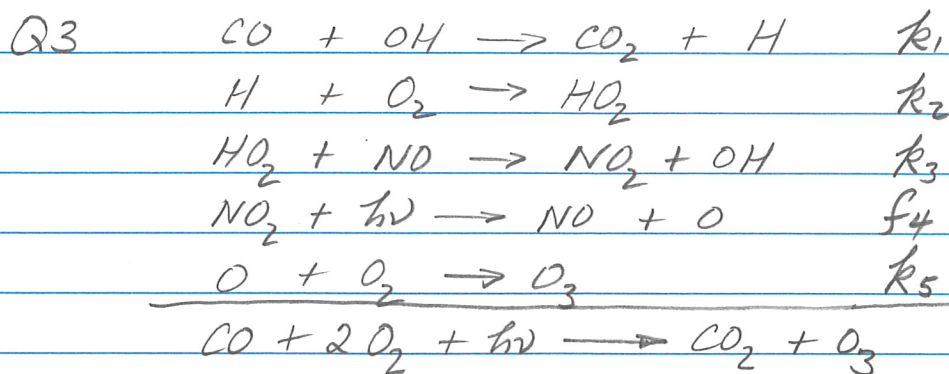 Q3 CO + OH → CO₂ + H k₁
H + O₂ → HO₂ k₂
HO₂ + NO → NO₂ + OH k₃
NO₂ + hν → NO + O f₄
O + O₂ → O₃ k₅
CO + 2O₂ + hν → CO₂ + O₃